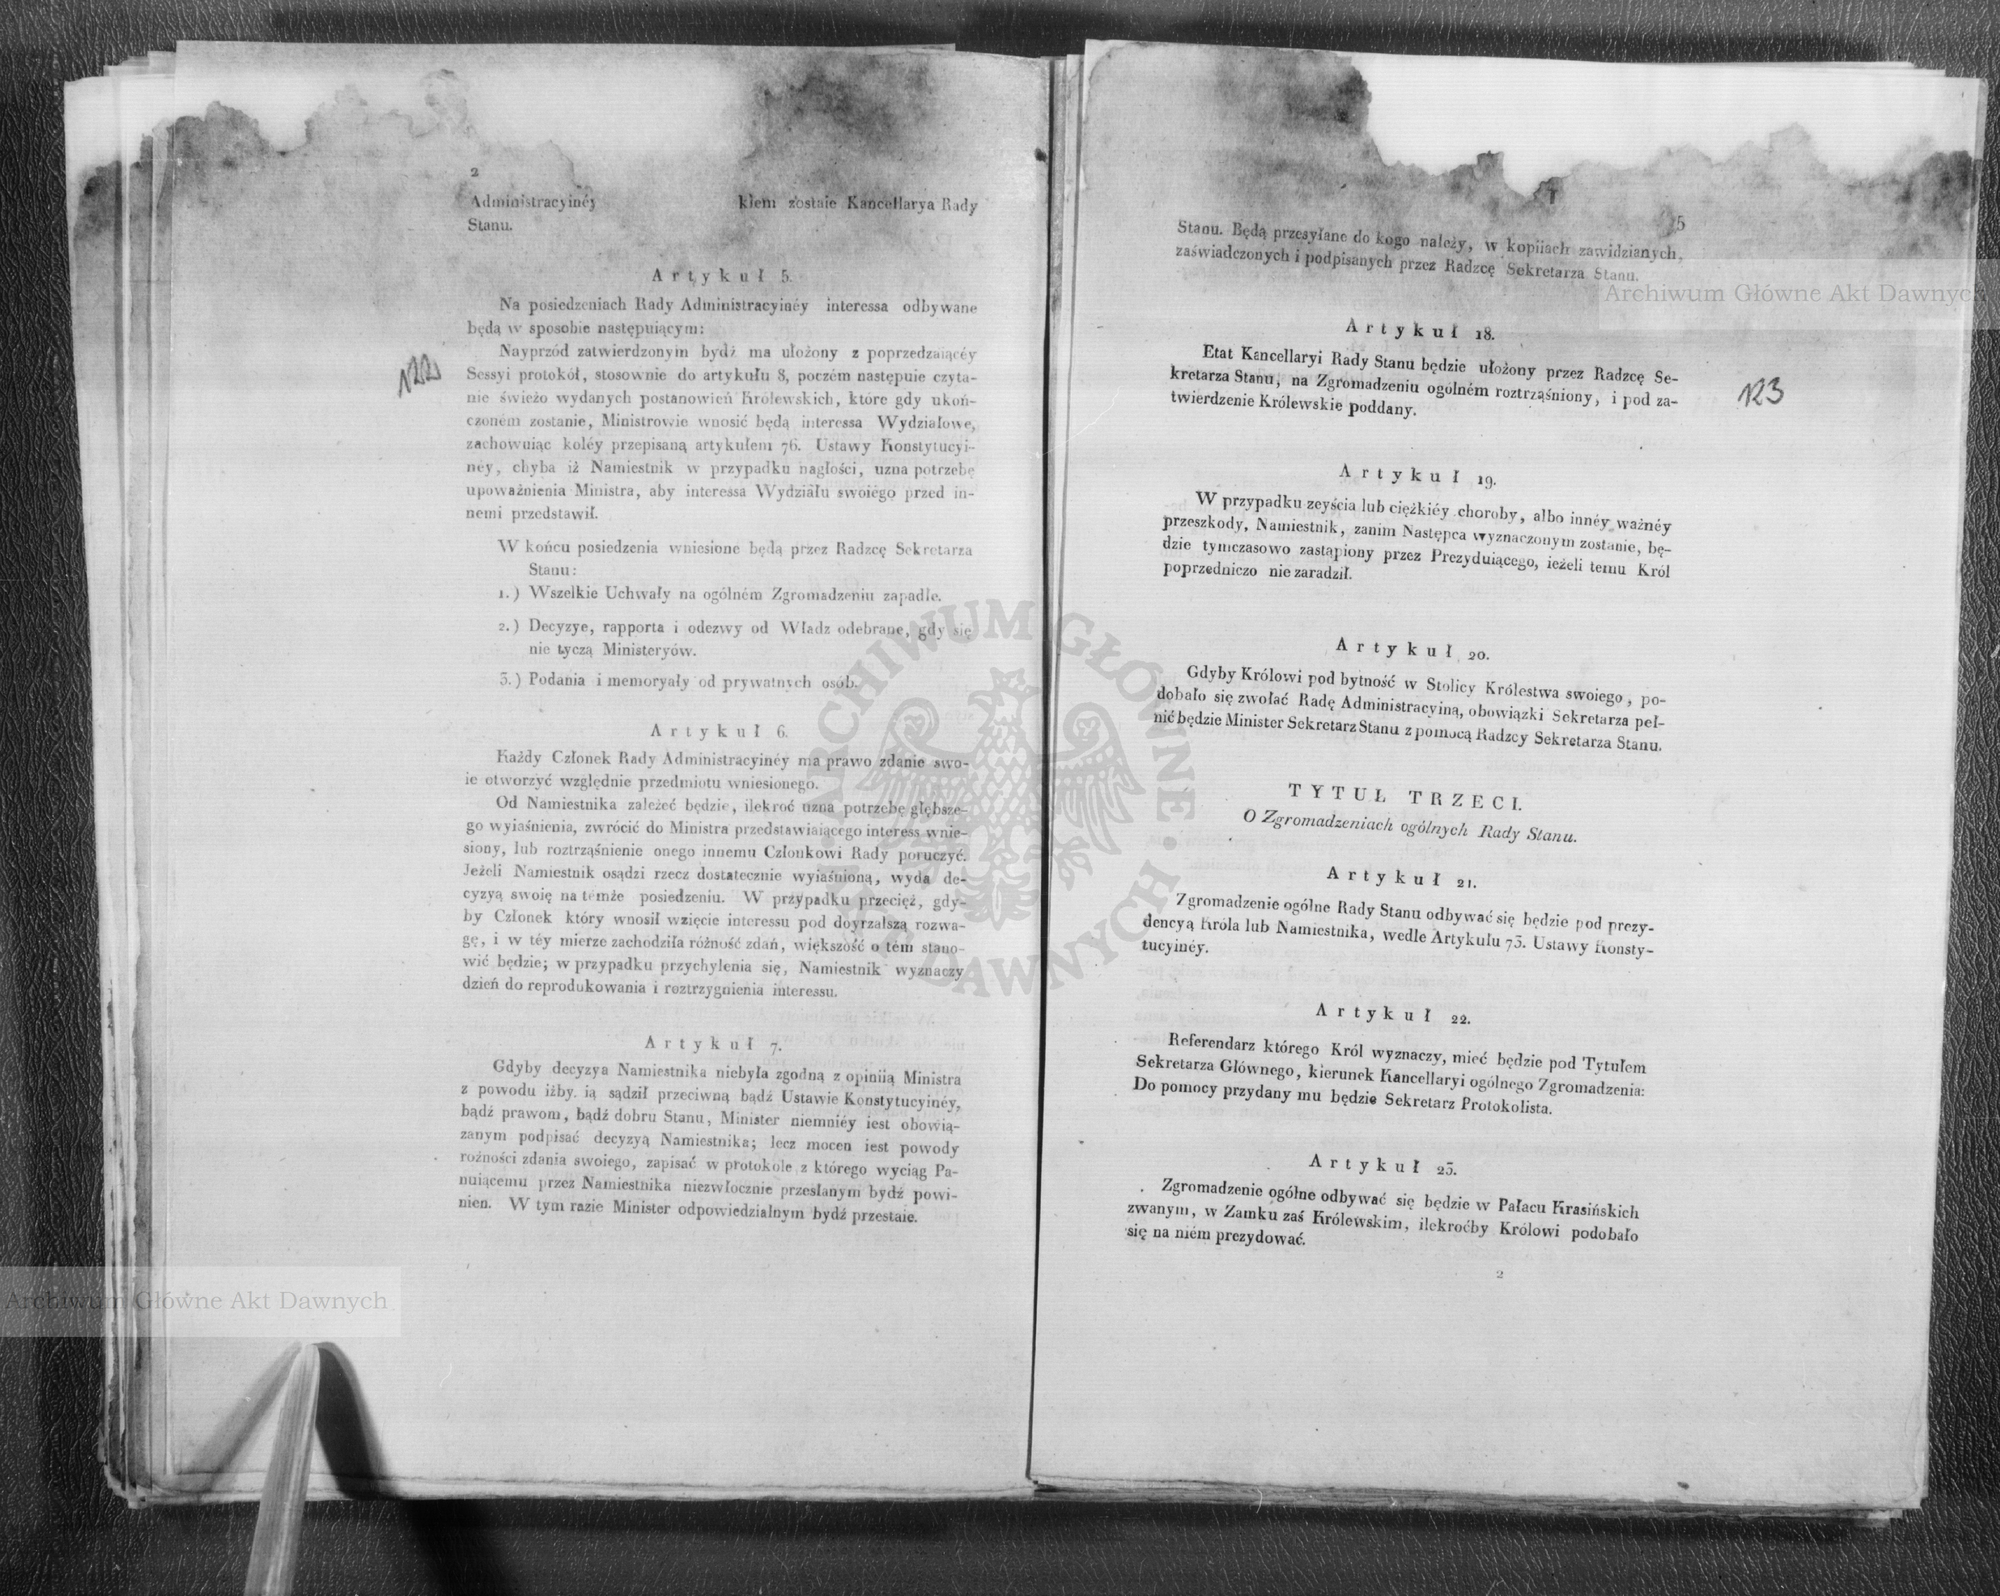 2
Administracyinéy kiem zostaie Kancellarya Rady
Stanu.
Artykuł 5.
Na posiedzeniach Rady Administracyinéy interessa odbywane
będą w sposobie następuiącym:
Nayprzód zatwierdzonym bydź ma ułożony z poprzedzaiącéy
Sessyi protokół, stosownie do artykułu 8, poczém następuie czyta-
nie świeżo wydanych postanowień Królewskich, które gdy ukoń-
czoném zostanie, Ministrowie wnosić będą interessa Wydziałowe,
zachowuiąc koléy przepisaną artykułem 76. Ustawy Konstytucyi-
néy, chyba iż Namiestnik w przypadku nagłości, uzna potrzebę
upoważnienia Ministra, aby interessa Wydziału swoiégo przed in-
nemi przedstawił.
W końcu posiedzenia wniesione będą przez Radzcę Sekretarza
Stanu:
1.) Wszelkie Uchwały na ogólném Zgromadzeniu zapadłe.
2.) Decyzye, rapporta i odezwy od Władz odebrane, gdy się
nie tyczą Ministeryów.
3.) Podania i memoryały od prywatnych osób.
Artykuł 6.
Każdy Członek Rady Administracyinéy ma prawo zdanie swo-
ie otworzyć względnie przedmiotu wniesionego.
Od Namiestnika zależeć będzie, ilekroć uzna potrzebę głębsze-
go wyiaśnienia, zwrócić do Ministra przedstawiaiącego interess wnie-
siony, lub roztrząśnienie onego innemu Członkowi Rady poruczyć.
Jeżeli Namiestnik osądzi rzecz dostatecznie wyiaśnioną, wyda de-
cyzyą swoię na témże posiedzeniu. W przypadku przecięż, gdy-
by Członek który wnosił wzięcie interessu pod doyrzalszą rozwa-
gę, i w téy mierze zachodziła różność zdań, większość o tém stano-
wić będzie; w przypadku przychylenia się, Namiestnik wyznaczy
dzień do reprodukowania i roztrzygnienia interessu.
Artykuł 7.
Gdyby decyzya Namiestnika niebyła zgodną z opiniią Ministra
z powodu iżby ią sądził przeciwną bądź Ustawie Konstytucyinéy,
bądź prawom, bądź dobru Stanu, Minister niemniéy iest obowią-
zanym podpisać decyzyą Namiestnika; lecz mocen iest powody
rożności zdania swoiego, zapisać w protokole z którego wyciąg Pa-
nuiącemu przez Namiestnika niezwłocznie przesłanym bydź powi-
nien. W tym razie Minister odpowiedzialnym bydź przestaie.
122
5
Stanu. Będą przesyłane do kogo należy, w kopiiach zawidzianych,
zaświadczonych i podpisanych przez Radzcę Sekretarza Stanu.
Artykuł 18.
Etat Kancellaryi Rady Stanu będzie ułożony przez Radzcę Se-
kretarza Stanu, na Zgromadzeniu ogólném roztrząśniony, i pod za-
twierdzenie Królewskie poddany.
123
Artykuł 19.
W przypadku zeyścia lub ciężkiéy choroby, albo innéy ważnéy
przeszkody, Namiestnik, zanim Następca wyznaczonym zostanie, bę-
dzie tymczasowo zastąpiony przez Prezyduiącego, ieżeli temu Król
poprzedniczo nie zaradził.
Artykuł 20.
Gdyby Królowi pod bytność w Stolicy Królestwa swoiego, po-
dobało się zwołać Radę Administracyiną, obowiązki Sekretarza peł-
nić będzie Minister Sekretarz Stanu z pomocą Radzcy Sekretarza Stanu.
TYTUŁ TRZECI.
O Zgromadzeniach ogólnych Rady Stanu.
Artykuł 21.
Zgromadzenie ogólne Rady Stanu odbywać się będzie pod prezy-
dencyą Króla lub Namiestnika, wedle Artykułu 73. Ustawy Konsty-
tucyinéy.
Artykuł 22.
Referendarz którego Król wyznaczy, mieć będzie pod Tytułem
Sekretarza Głównego, kierunek Kancellaryi ogólnego Zgromadzenia:
Do pomocy przydany mu będzie Sekretarz Protokolista.
Artykuł 23.
Zgromadzenie ogólne odbywać się będzie w Pałacu Krasińskich
zwanym, w Zamku zaś Królewskim, ilekroćby Królowi podobało
się na niém prezydować.
2
Archiwum Główne Akt Dawnych
Archiwum Główne Akt Dawnych
ARCHIWUM GŁÓWNE · AKT DAWNYCH ·